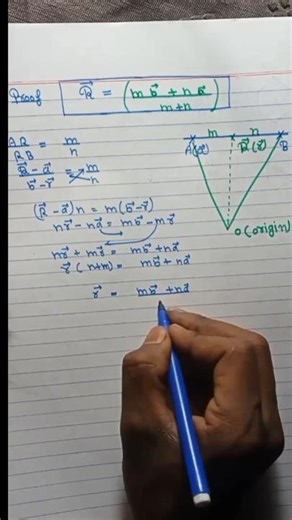 Proof R⃗ = (m b⃗ + n a⃗ / m+n)
AR/RB = m/n
R⃗ - a⃗ / b⃗ - r⃗ = m/n
(R⃗ - a⃗)n = m(b⃗ - r⃗)
n r⃗ - n a⃗ = m b⃗ - m r⃗
n r⃗ + m r⃗ = m b⃗ + n a⃗
r⃗ (n+m) = m b⃗ + n a⃗
r⃗ = m b⃗ + n a⃗
m n
A(a⃗) R⃗(r⃗) B
O(origin)